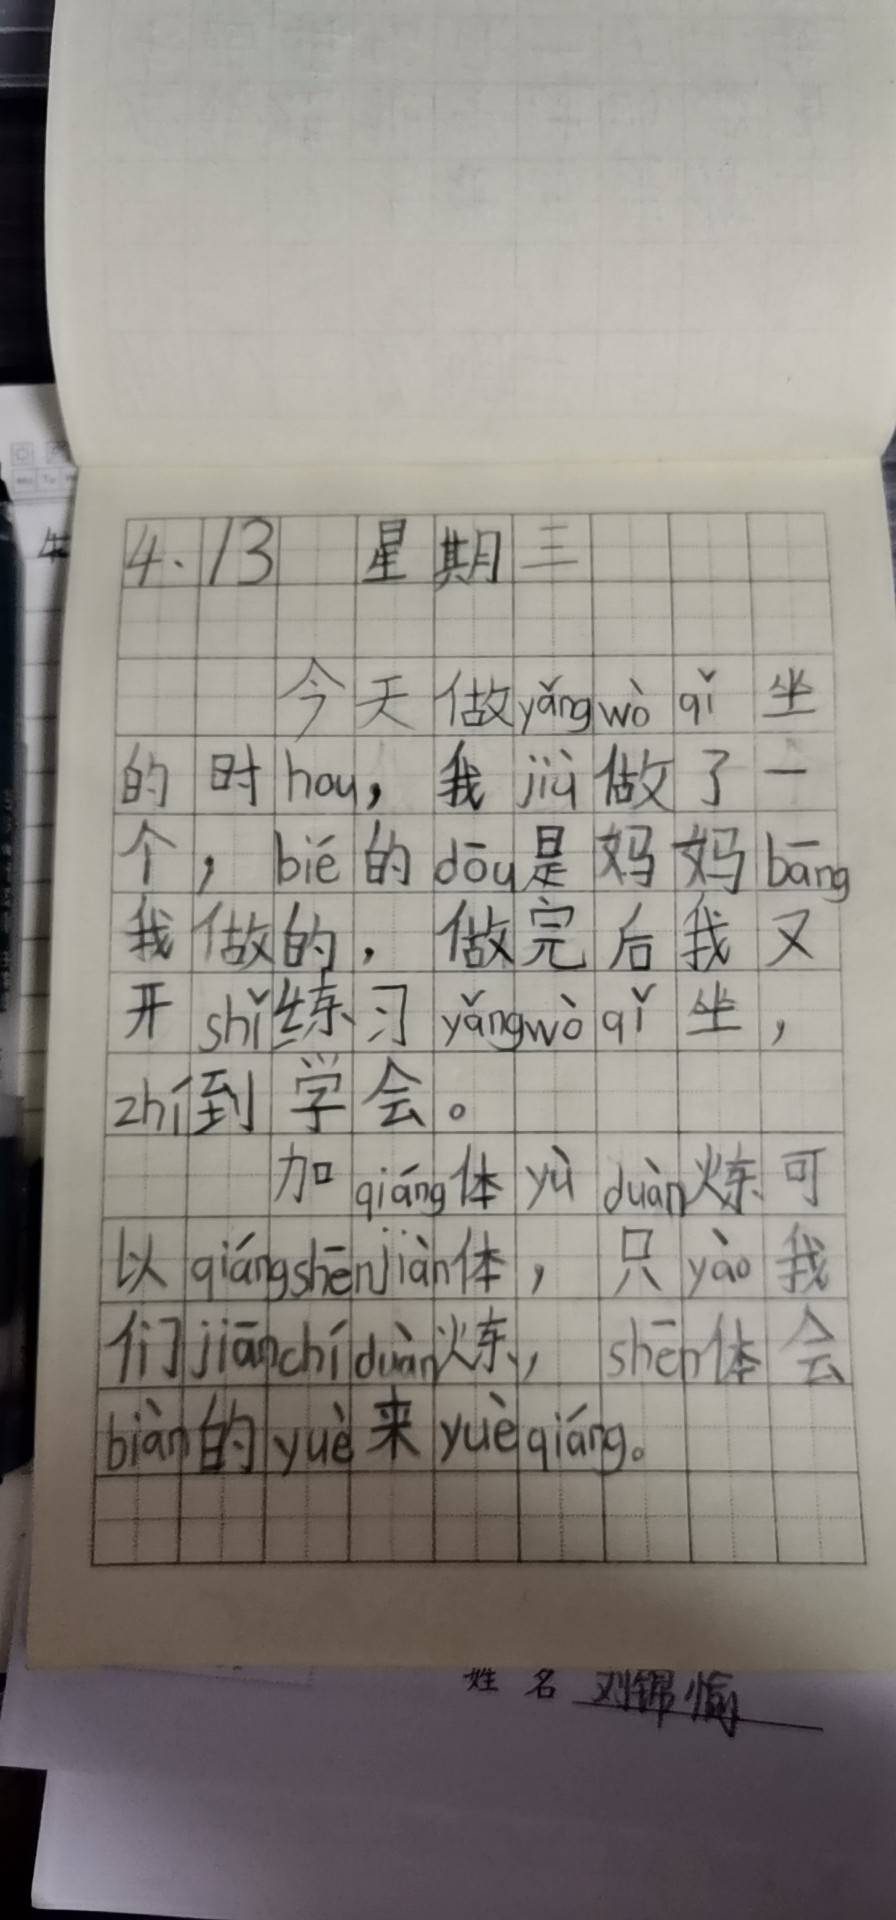 4.13 星期三
今天做yǎngwò qǐ 坐
的时hou，我jiù做了一
个，bié的dōu是妈妈bāng
我做的，做完后我又
开shǐ练习yǎngwò qǐ坐，
zhí到学会。
加qiáng体yù duàn炼可
以qiángshēnjiàn体，只yào我
们jiānchí duàn炼，shēn体会
biàn的yuè来yuè qiáng。
姓名 刘锦愉